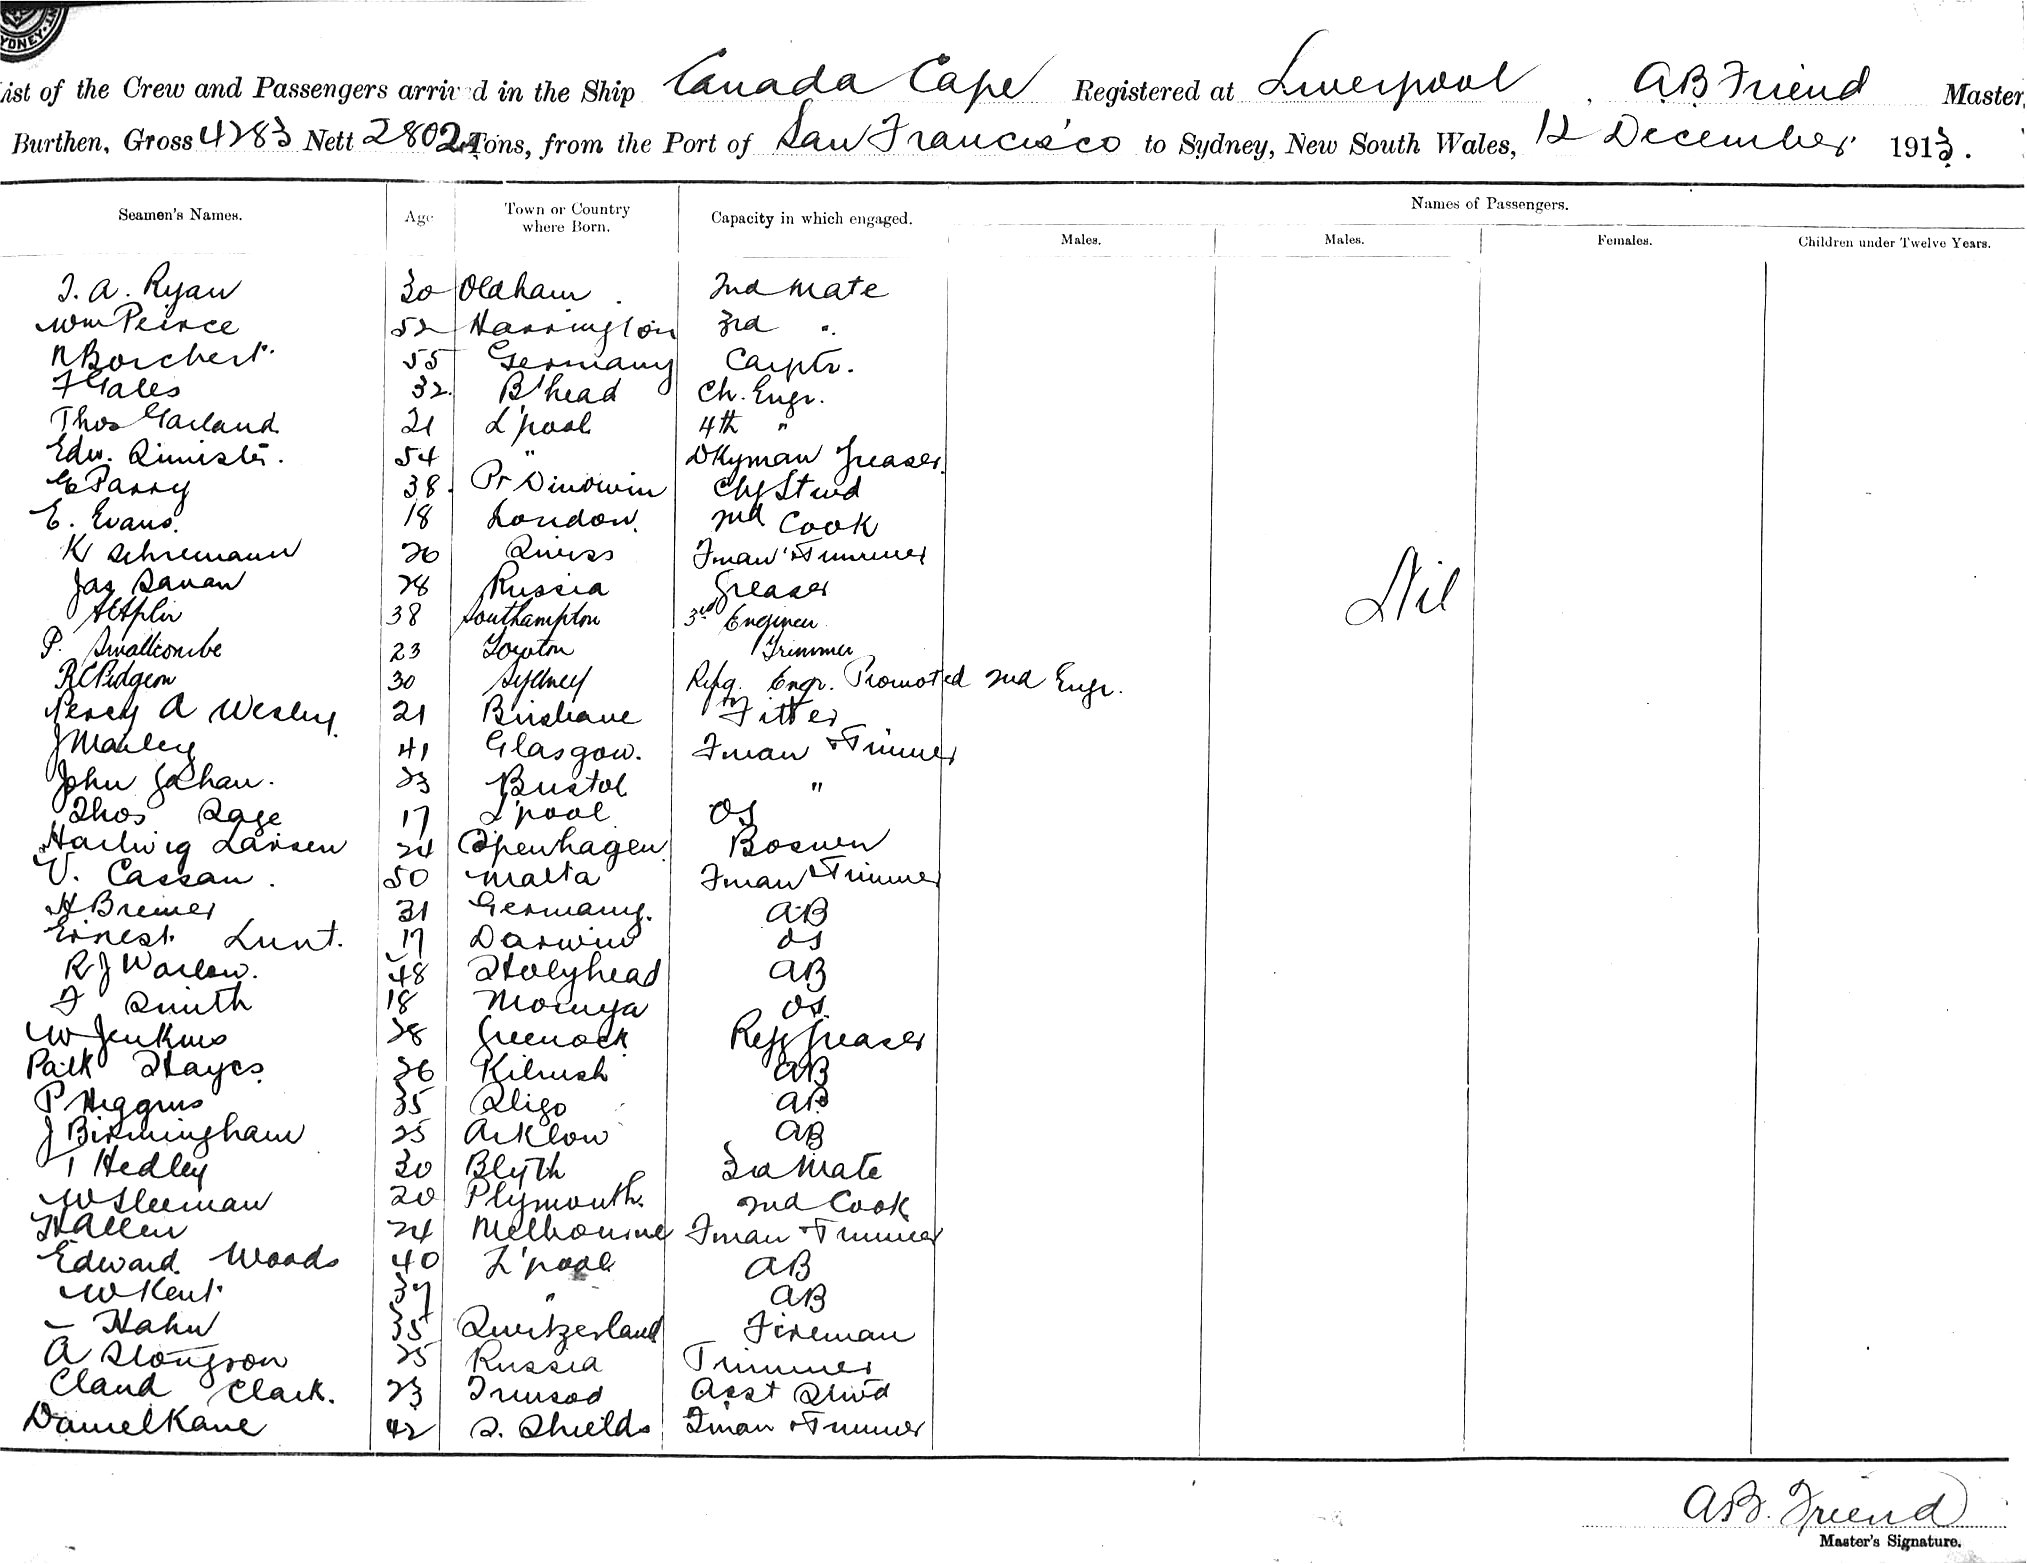 YDNEY
List of the Crew and Passengers arrived in the Ship Canada Cape Registered at Liverpool, AB Friend Master,
Burthen, Gross 4283 Nett 2802 Tons, from the Port of San Francisco to Sydney, New South Wales, 12 December 1913.
Seamen's Names. Age Town or Country where Born. Capacity in which engaged. Names of Passengers.
Males. Males. Females. Children under Twelve Years.
J. A. Ryan 30 Oldham 2nd Mate
Wm Peirce 52 Harrington 3rd "
Borchert 55 Germany Carptr.
F Gales 32 B'head Ch. Engr.
Thos Garland 21 L'pool 4th "
Edw. 54 " DKyman Greaser
E Parry 38 Pt Dinorwin Chf Stwd
E. Evans. 18 London. 2nd Cook
K Schiemann 26 Swiss Fman & Trimmer
Jas Savan 28 Russia Greaser
38 Southampton 3rd Engineer
P. Smallcombe 23 Trimmer
R C Pidgeon 30 Sydney Refg. Engr. Promoted 2nd Engr.
Percy A Wesley 21 Brisbane Fitter
J Manley 41 Glasgow. Fman & Trimmer
John 23 Bristol "
Thos Sage 17 L'pool OS
Hartwig Larsen 24 Copenhagen Bosun
V. Cassan. 50 Malta Fman & Trimmer
H Bremer 31 Germany. AB
Ernest Lunt. 17 Darwin OS
R J Warlow. 48 Holyhead AB
F Smith 18 Moruya OS.
W Jenkins 28 Greenock Refg Greaser
Patk Hayes 26 Kilrush AB
P Higgins 35 Sligo AB
J Birmingham 25 Arklow AB
T Hedley 30 Blyth 3rd Mate
W Sleeman 20 Plymouth. 2nd Cook
H Allen 24 Melbourne Fman & Trimmer
Edward Woods 40 L'pool AB
W Kent 37 " AB
– Hahn 35 Switzerland Fireman
A 25 Russia Trimmer
Claud Clark. 23 Asst Stwd
Daniel Kane 42 S. Shields Fman & Trimmer
Nil
A.B. Friend
Master's Signature.